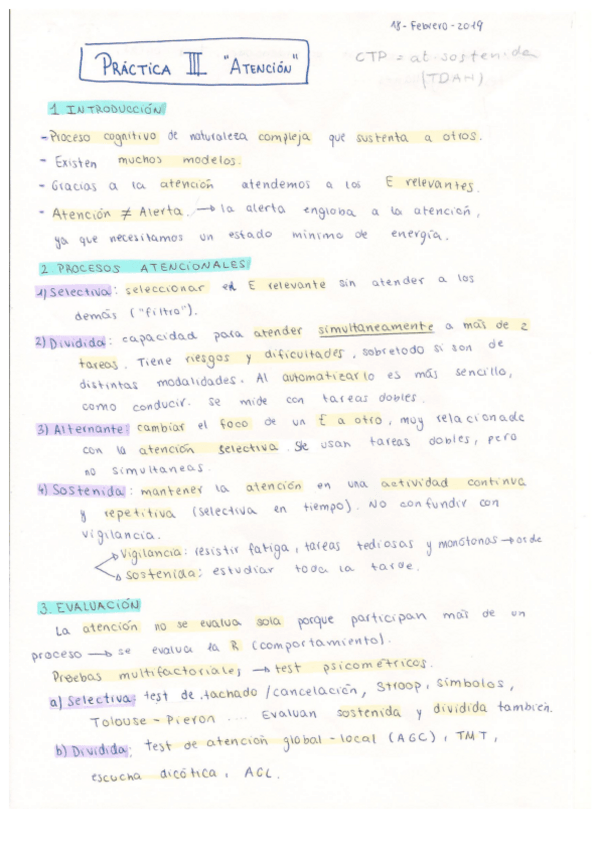 18-Febrero-2019
PRÁCTICA III "ATENCIÓN"
CTP = at. sostenida
(TDAH)
1. INTRODUCCIÓN
- Proceso cognitivo de naturaleza compleja que sustenta a otros.
- Existen muchos modelos.
- Gracias a la atención atendemos a los E relevantes.
- Atención ≠ Alerta. → la alerta engloba a la atención,
ya que necesitamos un estado mínimo de energía.
2. PROCESOS ATENCIONALES
1) Selectiva: seleccionar el E relevante sin atender a los
demás ("filtro").
2) Dividida: capacidad para atender simultáneamente a más de 2
tareas. Tiene riesgos y dificultades, sobretodo si son de
distintas modalidades. Al automatizarlo es más sencillo,
como conducir. Se mide con tareas dobles.
3) Alternante: cambiar el foco de un E a otro, muy relacionade
con la atención selectiva. Se usan tareas dobles, pero
no simultaneas.
4) Sostenida: mantener la atención en una actividad continua
y repetitiva (selectiva en tiempo). No confundir con
vigilancia.
Vigilancia: resistir fatiga, tareas tediosas y monótonas →
Sostenida: estudiar toda la tarde.
3. EVALUACIÓN
La atención no se evalua sola porque participan más de un
proceso → se evalua la R (comportamiento).
Pruebas multifactoriales → test psicométricos.
a) Selectiva: test de tachado/cancelación, Stroop, símbolos,
Tolouse-Pieron .... Evaluan sostenida y dividida también.
b) Dividida: test de atención global-local (AGC), TMT,
escucha dicótica, AGL.